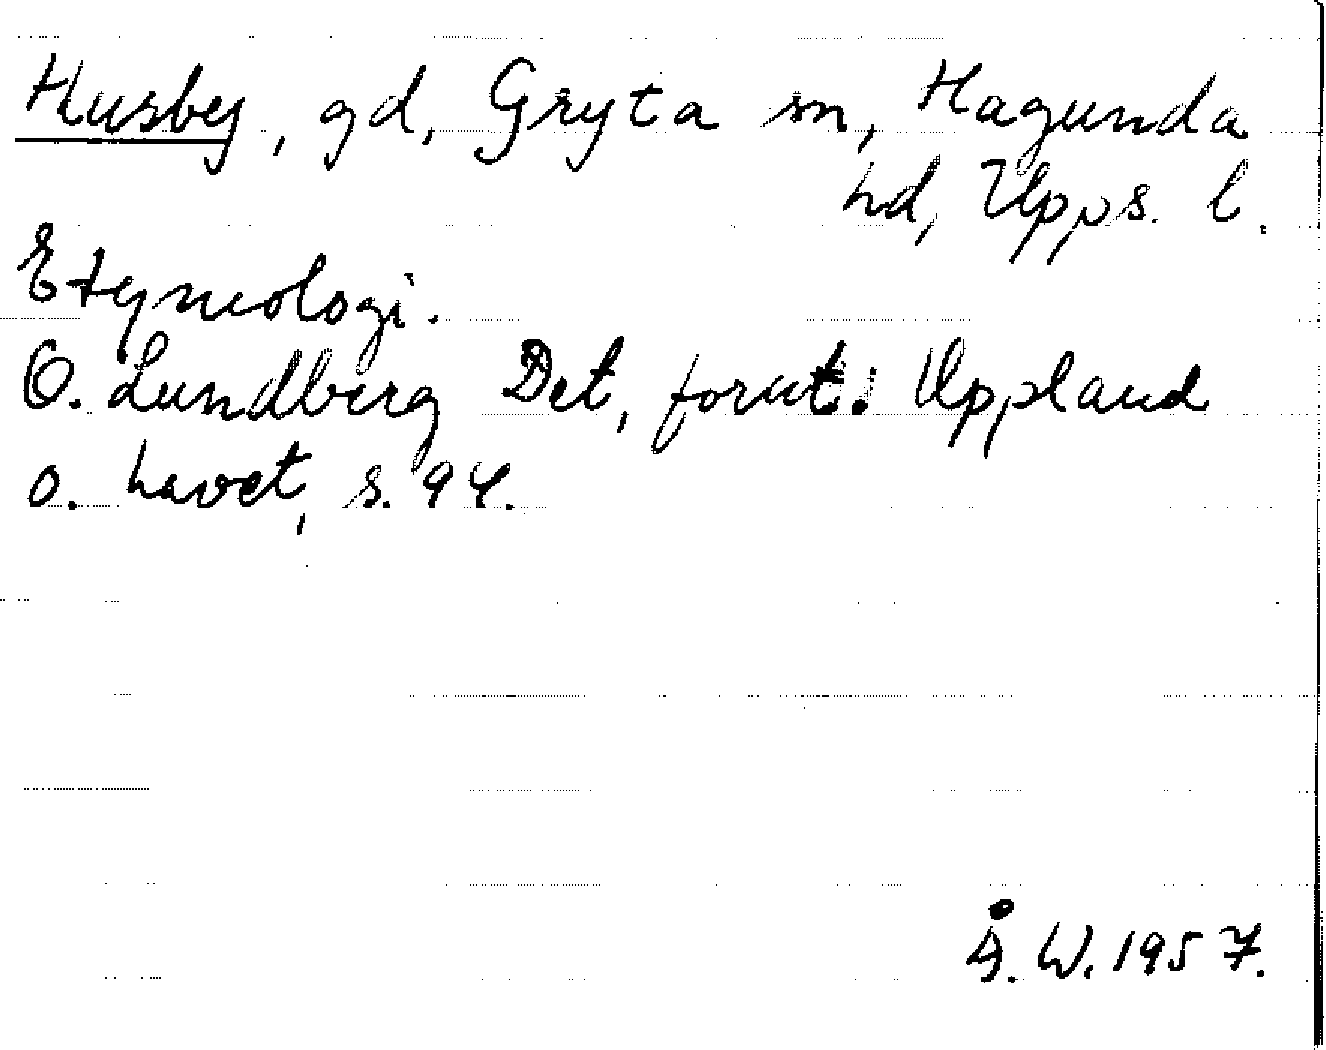 Husby, gd, Gryta sn, Hagunda
hd, Upps. l.
Etymologi.
O. Lundberg Det, fornt. Uppland
o. havet, s. 94.
Å. W. 1957.